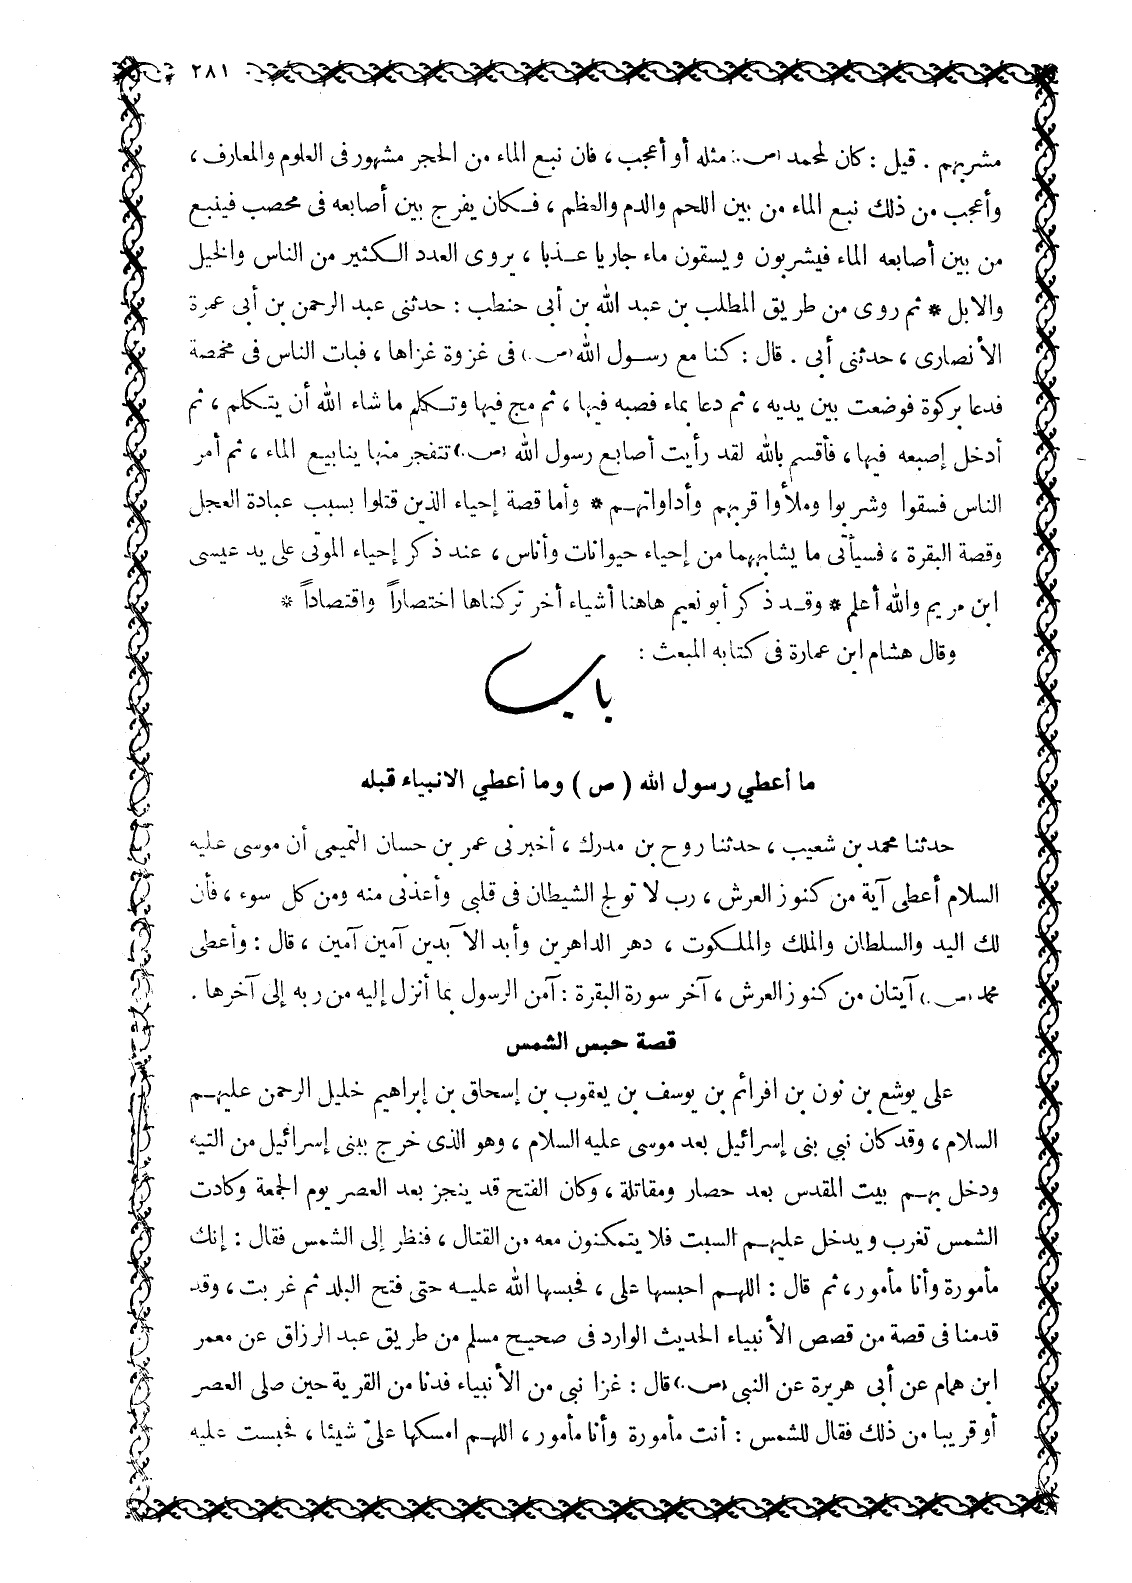 ٢٨١
مشربهم . قيل : كان لمحمد (ص) مثله أو أعجب ، فان نبع الماء من الحجر مشهور فى العلوم والمعارف ،
وأعجب من ذلك نبع الماء من بين اللحم والدم والعظم ، فكان يفرج بين أصابعه فى محصب فينبع
من بين أصابعه الماء فيشربون ويسقون ماء جاريا عذبا ، يروى العدد الكثير من الناس والخيل
والابل * ثم روى من طريق المطلب بن عبد الله بن أبى حنطب : حدثنى عبد الرحمن بن أبى عمرة
الأنصارى ، حدثنى أبى . قال : كنا مع رسول الله (ص) فى غزوة غزاها ، فبات الناس فى مخمصة
فدعا بركوة فوضعت بين يديه ، ثم دعا بماء فصبه فيها ، ثم مج فيها وتكلم ما شاء الله أن يتكلم ، ثم
أدخل إصبعه فيها ، فأقسم بالله لقد رأيت أصابع رسول الله (ص) تتفجر منها ينابيع الماء ، ثم أمر
الناس فسقوا وشربوا وملأوا قربهم وأداواتهم * وأما قصة إحياء الذين قتلوا بسبب عبادة العجل
وقصة البقرة ، فسيأتى ما يشابههما من إحياء حيوانات وأناس ، عند ذكر إحياء الموتى على يد عيسى
ابن مريم والله أعلم * وقد ذكر أبو نعيم هاهنا أشياء أخر تركناها اختصاراً واقتصاداً *
وقال هشام ابن عمارة فى كتابه المبعث :
باب
ما أعطي رسول الله ( ص ) وما أعطي الانبياء قبله
حدثنا محمد بن شعيب ، حدثنا روح بن مدرك ، أخبرنى عمر بن حسان التميمى أن موسى عليه
السلام أعطى آية من كنوز العرش ، رب لا تولج الشيطان فى قلبى وأعذنى منه ومن كل سوء ، فأن
لك اليد والسلطان والملك والملكوت ، دهر الداهرين وأبد الآبدين آمين آمين ، قال : وأعطى
محمد (ص) آيتان من كنوز العرش ، آخر سورة البقرة : آمن الرسول بما أنزل إليه من ربه إلى آخرها .
قصة حبس الشمس
على يوشع بن نون بن افرائم بن يوسف بن يعقوب بن إسحاق بن إبراهيم خليل الرحمن عليهم
السلام ، وقد كان نبي بنى إسرائيل بعد موسى عليه السلام ، وهو الذى خرج ببنى إسرائيل من التيه
ودخل بهم بيت المقدس بعد حصار ومقاتلة ، وكان الفتح قد ينجز بعد العصر يوم الجمعة وكادت
الشمس تغرب ويدخل عليهم السبت فلا يتمكنون معه من القتال ، فنظر إلى الشمس فقال : إنك
مأمورة وأنا مأمور ، ثم قال : اللهم احبسها على ، فحبسها الله عليه حتى فتح البلد ثم غربت ، وقد
قدمنا فى قصة من قصص الأنبياء الحديث الوارد فى صحيح مسلم من طريق عبد الرزاق عن معمر
ابن همام عن أبى هريرة عن النبى (ص) قال : غزا نبى من الأنبياء فدنا من القرية حين صلى العصر
أو قريبا من ذلك فقال للشمس : أنت مأمورة وأنا مأمور ، اللهم امسكها علىّ شيئا ، فحبست عليه